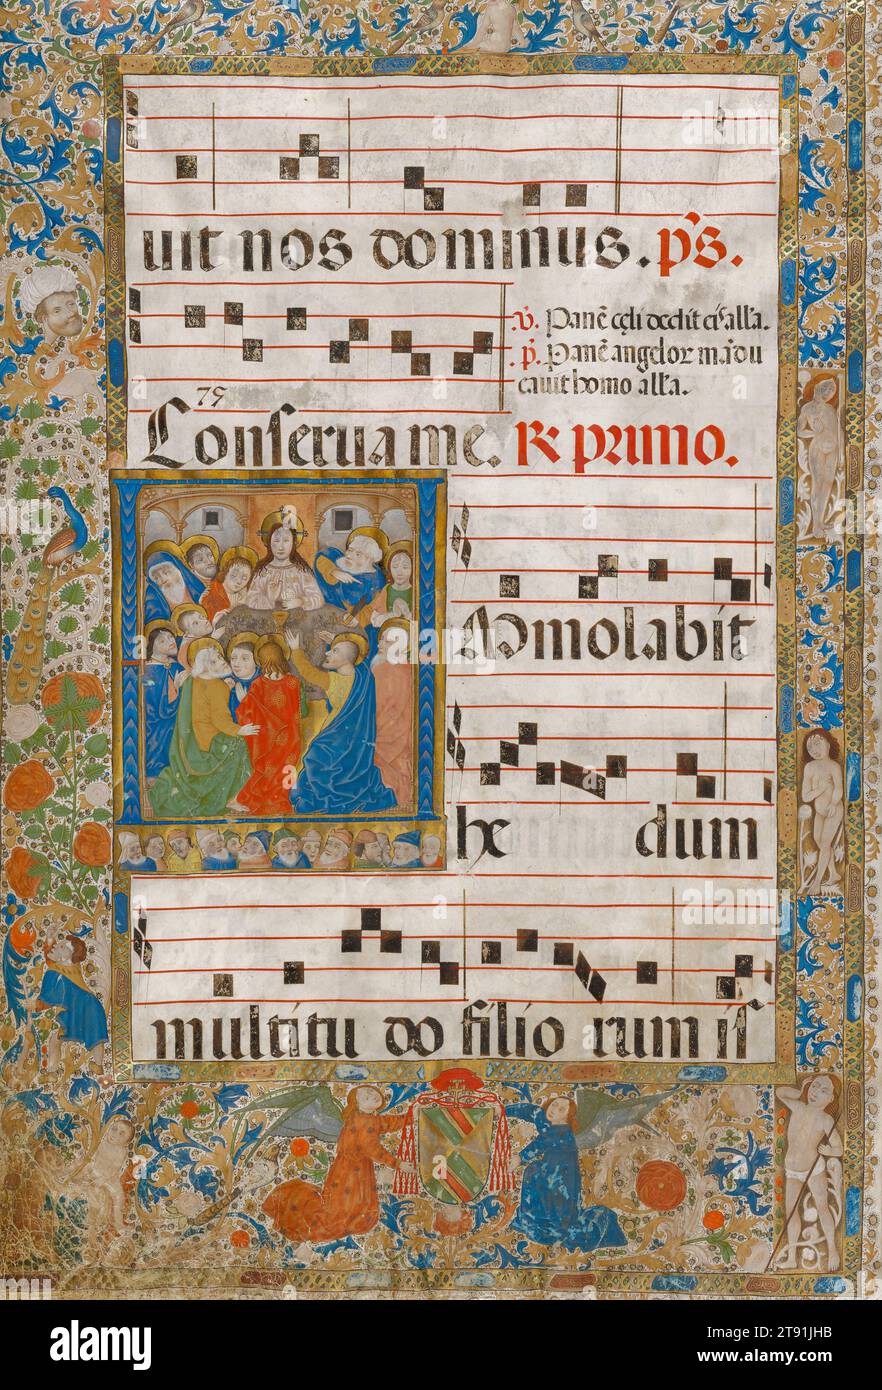 uit nos dominus. ps.
℣. Panē celi dedit eis alľa.
p̄. Panē angelor mādu
cauit homo alľa.
79
Conserua me. R primo.
mmolabit
he dum
multitu do filio rum iſ
alamy
Image ID: 2T91JHB
www.alamy.com